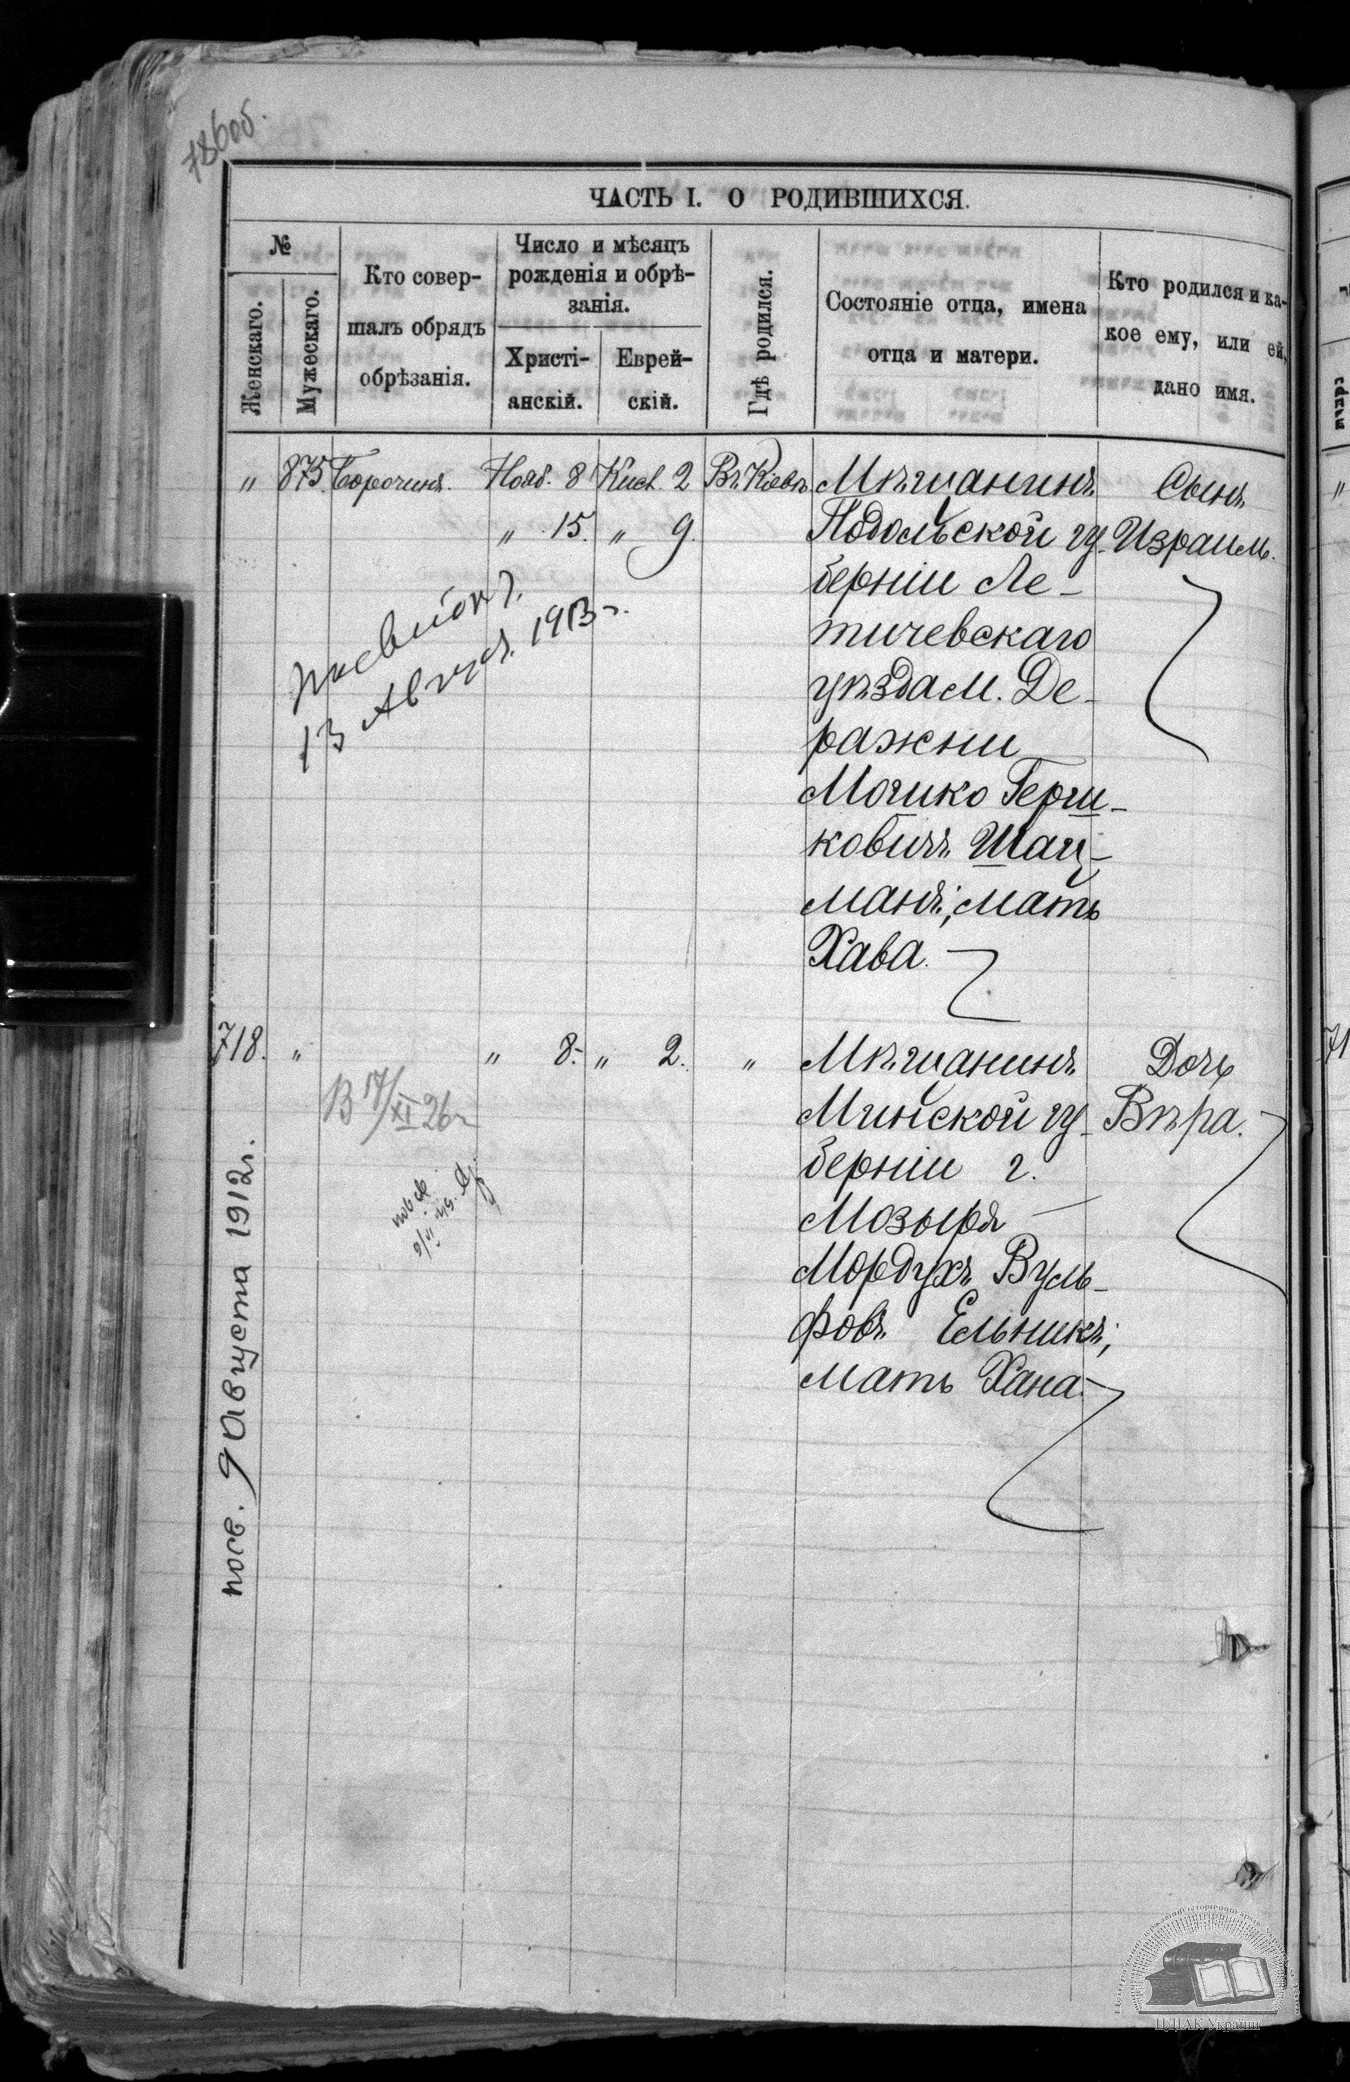 786 об.
ЧАСТЬ I. О РОДИВШИХСЯ.
№
Женскаго.
Мужескаго.
Кто совер-
шалъ обрядъ
обрѣзанія.
Число и мѣсяцъ
рожденія и обрѣ-
занія.
Христі-
анскій.
Еврей-
скій.
Гдѣ родился.
Состояніе отца, имена
отца и матери.
Кто родился и ка-
кое ему, или ей,
дано имя.
" 875. Борочинъ. Нояб. 8 Кисл. 2 Въ Кіевѣ
" 15. " 9.
Мѣщанинъ
Подольской гу-
берніи Ле-
тичевскаго
уѣзда м. Де-
ражни
Мошко Герш-
ковичъ Шац-
манъ, мать
Хава.
Сынъ
Израиль.
13 Август. 1913 г.
718. " " 8. " 2. "
Мѣщанинъ
Минской гу-
берніи г.
Мозыря
Мордухъ Вуль-
фовъ Ельникъ,
мать Хана.
Дочь
Вѣра.
В 17/XI 26 г
посв. 9 Августа 1912 г.
ЦДІАК України